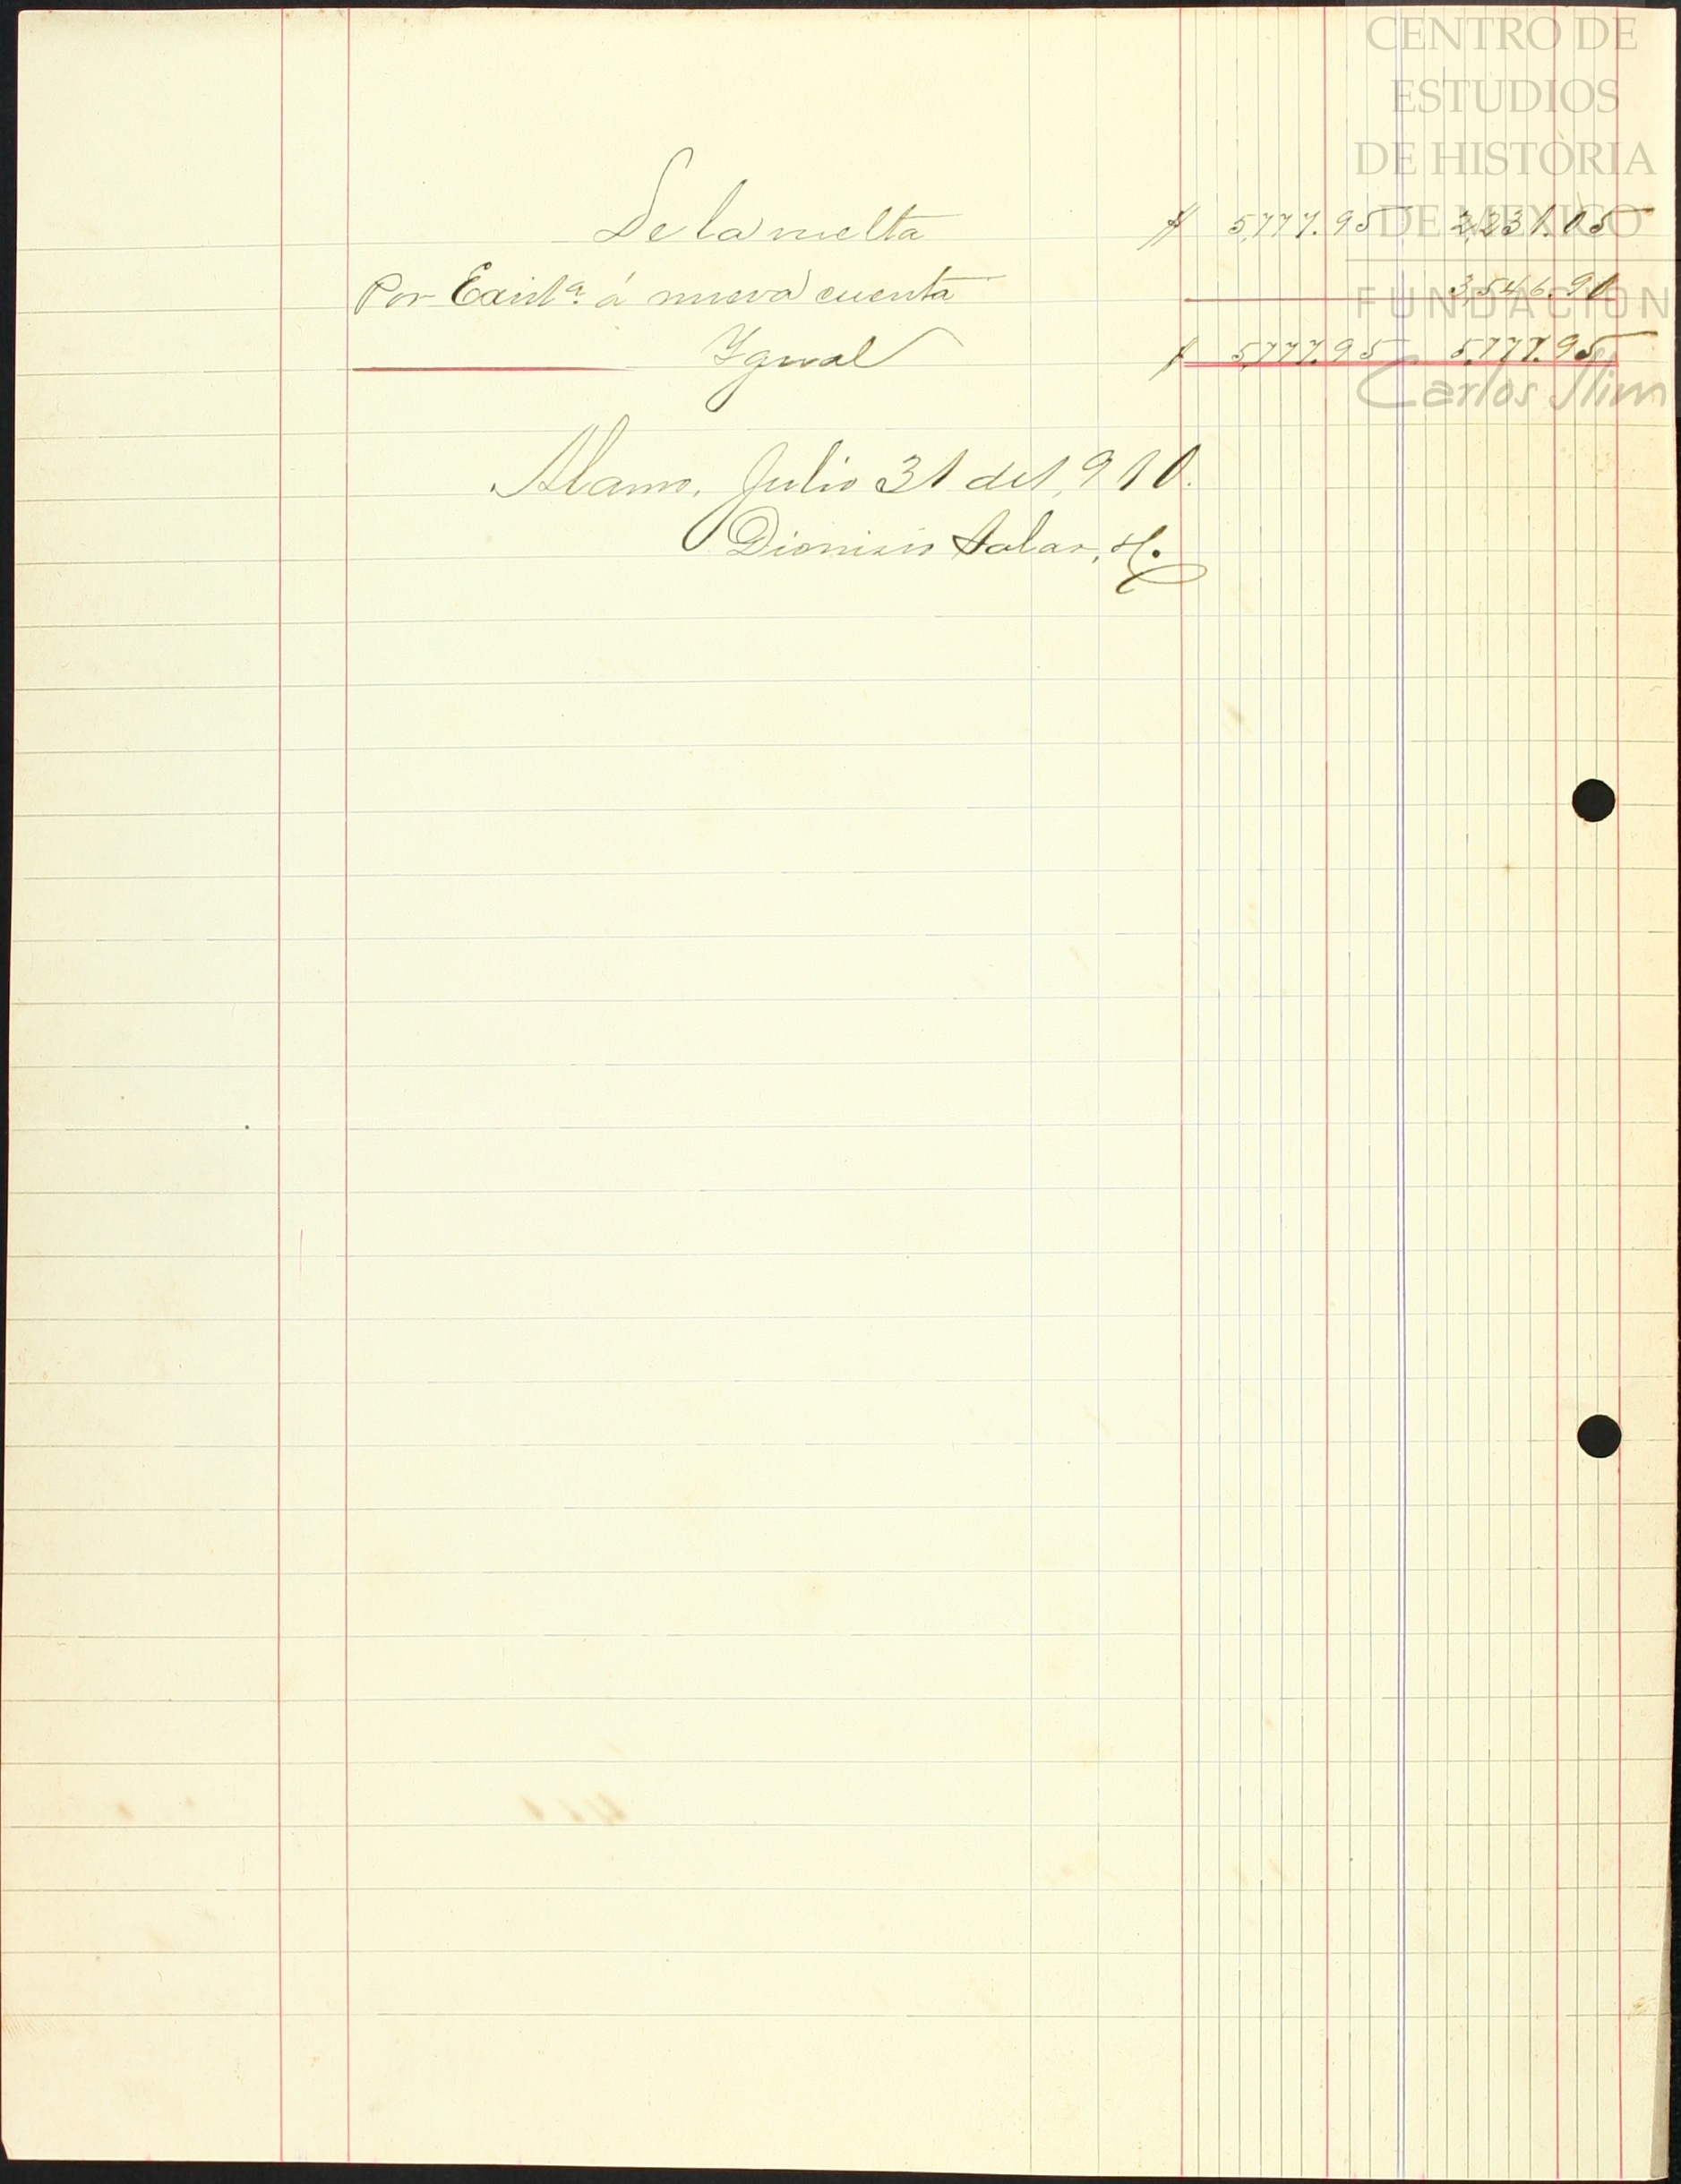 CENTRO DE
ESTUDIOS
DE HISTORIA
DE MEXICO
FUNDACION
Carlos Slim
De la vuelta $ 5,777.95 2,231.05
Por Exist.ª á nueva cuenta 3,546.90
Ygual $ 5,777.95 5,777.95
Alamo, Julio 31 de 1,910.
Dionisio Salas, H.